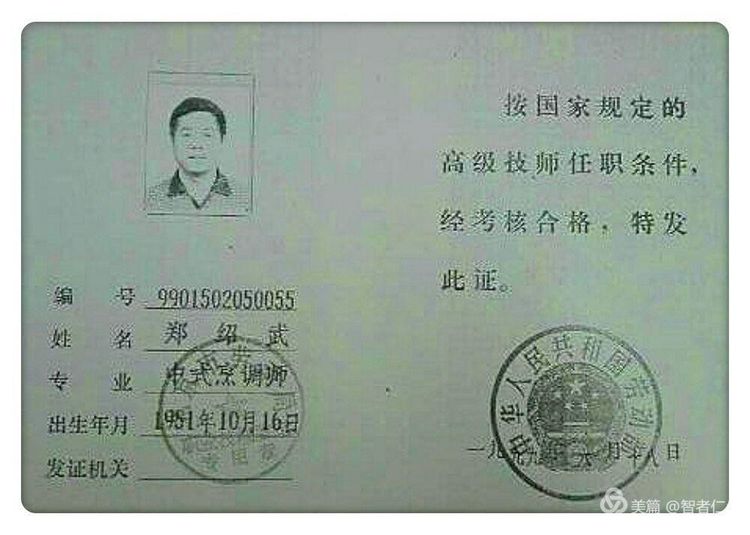 按国家规定的
高级技师任职条件，
经考核合格，特发
此证。
编 号 9901502050055
姓 名 郑 绍 武
专 业 中式烹调师
出生年月 1951年10月16日
发证机关
中华人民共和国劳动部
月十八日
美篇 @智者仁